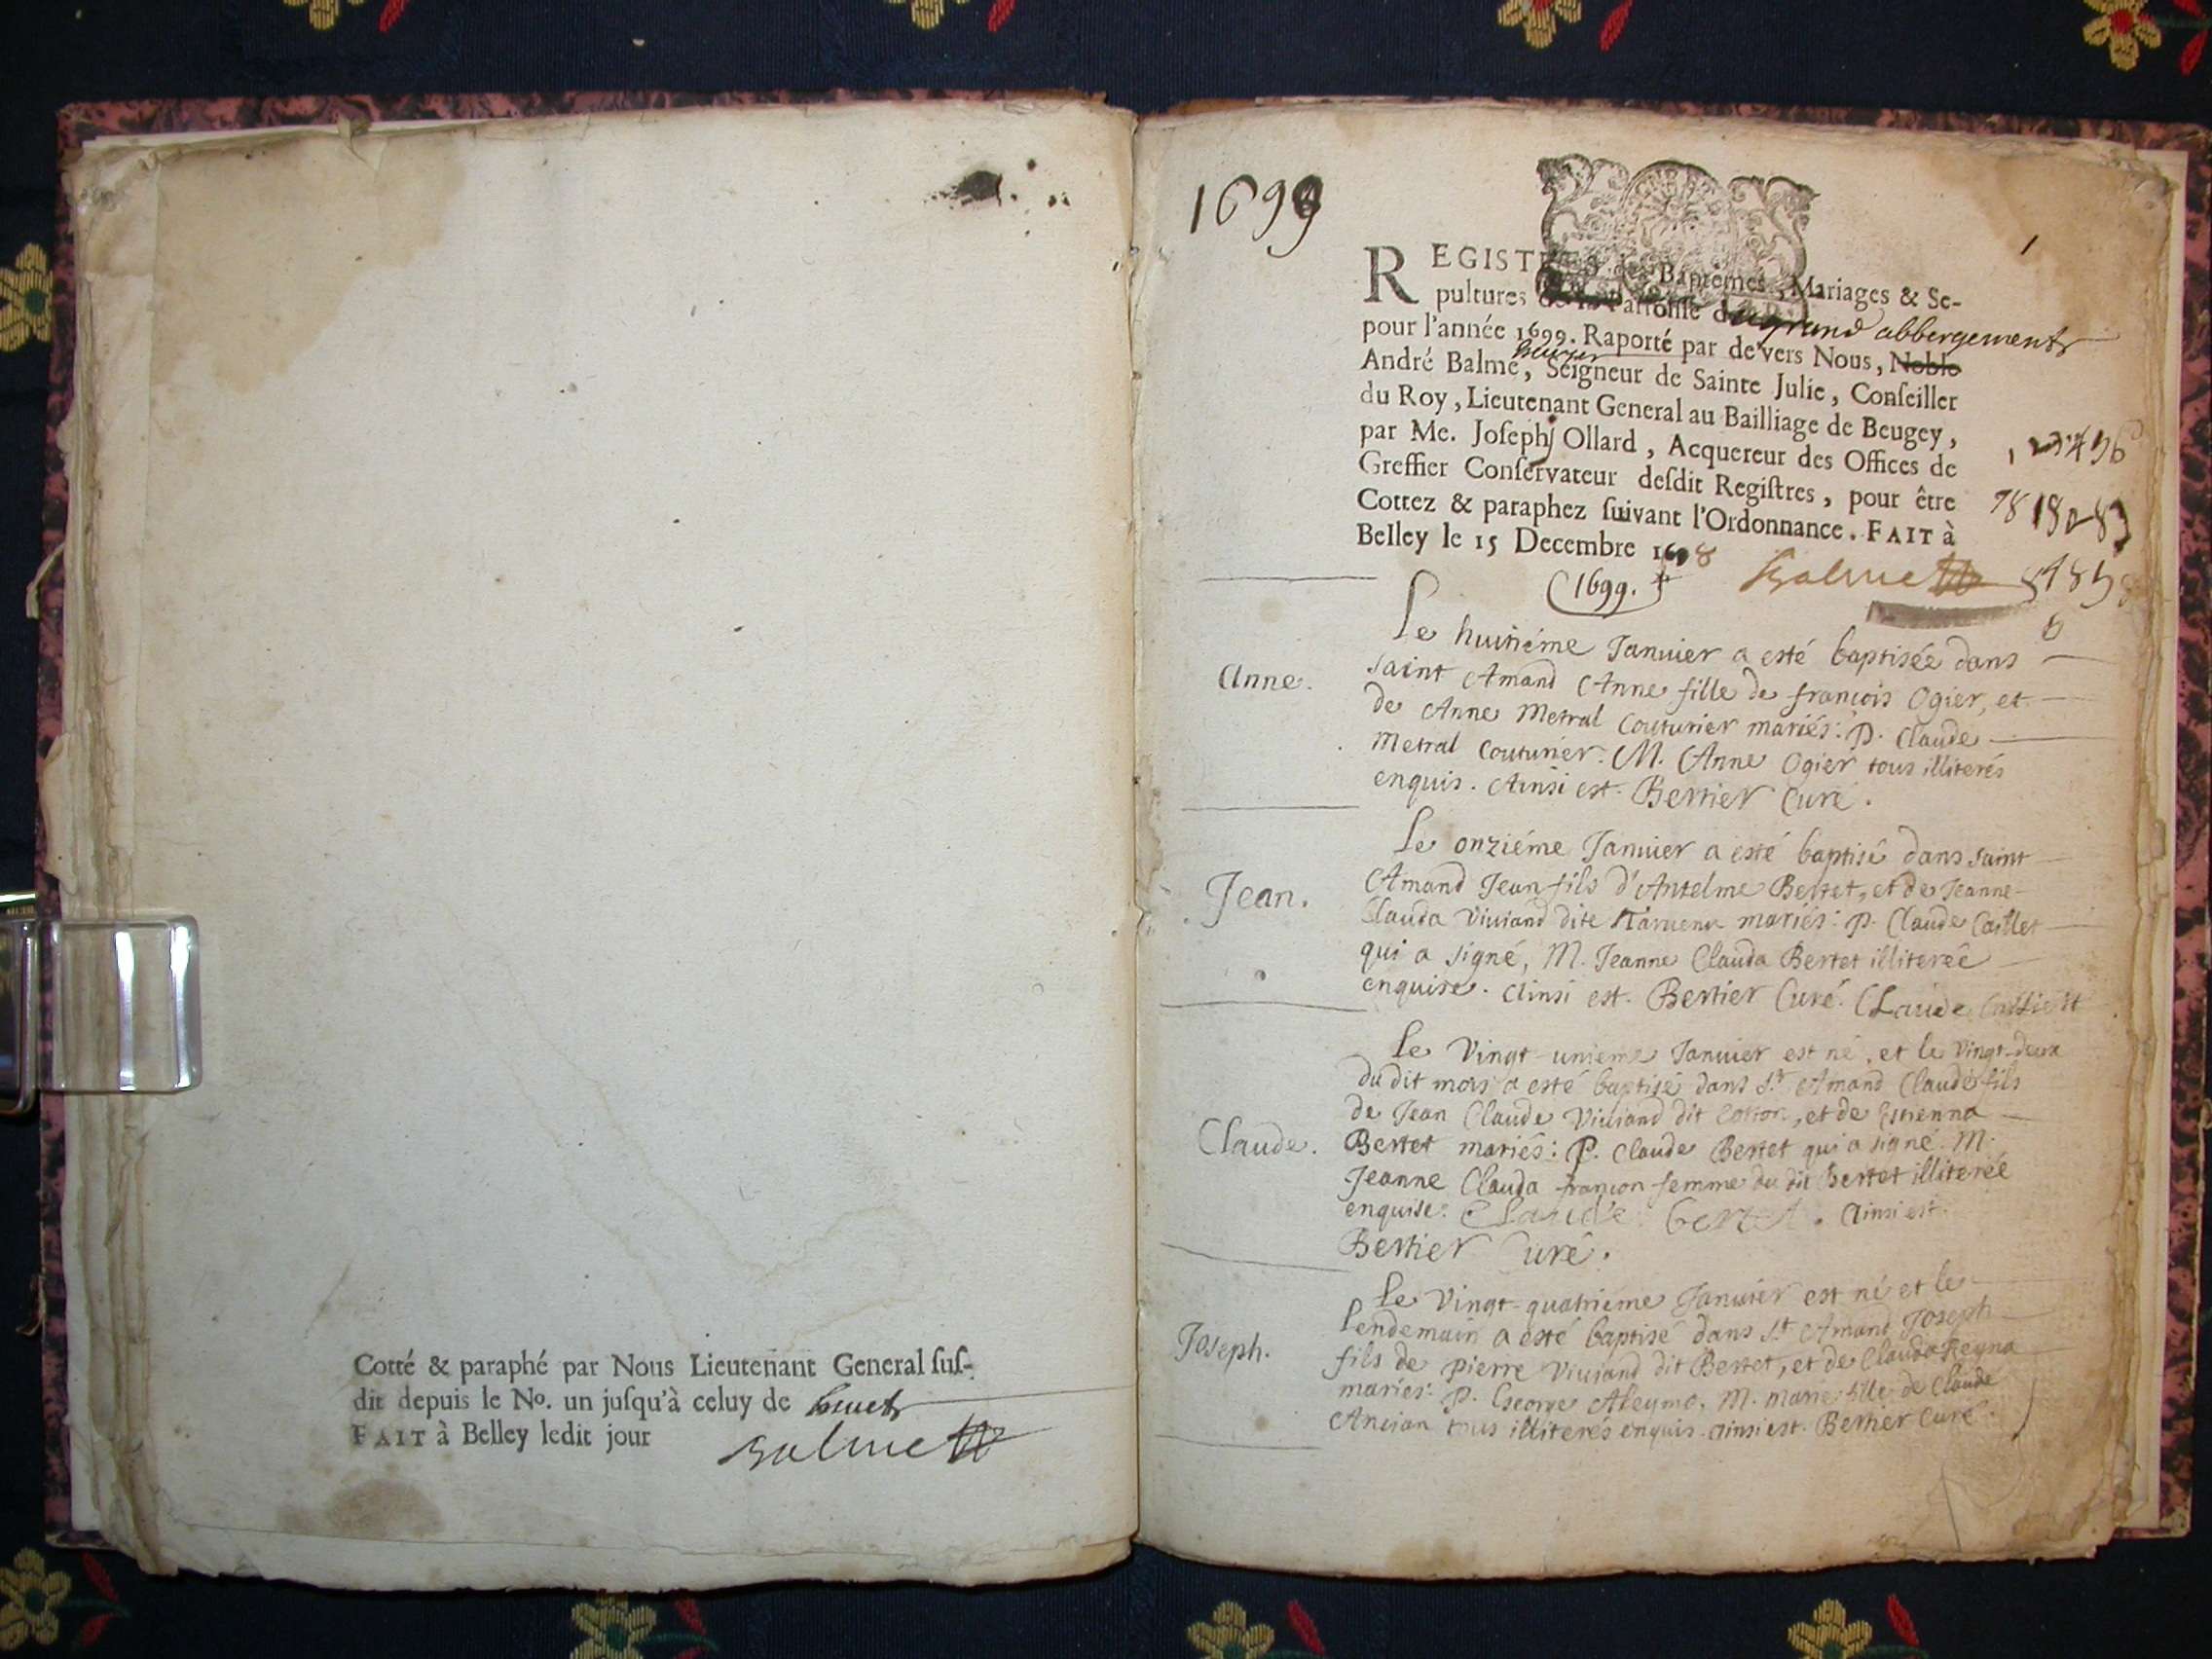 Cotté & paraphé par Nous Lieutenant General suſ-
dit depuis le No. un juſqu'à celuy de
FAIT à Belley ledit jour
Balme
1699
1
REGISTRES des Baptêmes, Mariages & Se-
pultures de la Parroiſſe du grand abbergement
pour l'année 1699. Raporté par devers Nous, Noble
André Balme, Seigneur de Sainte Julie, Conſeiller
du Roy, Lieutenant General au Bailliage de Beugey,
par Me. Joſeph Ollard, Acquereur des Offices de
Greffier Conſervateur deſdit Regiſtres, pour être
Cottez & paraphez ſuivant l'Ordonnance. FAIT à
Belley le 15 Decembre 1698
Balme
1699.
Anne.
Le huitiéme Januier a esté baptisée dans
saint Amand Anne fille de françois Ogier, et
de Anne Metral Couturier mariés: P. Claude
Metral Couturier. M. Anne Ogier tous illiterés
enquis. Ainsi est. Bertier Curé.
Jean.
Le onziéme Januier a esté baptisé dans saint
Amand Jean fils d'Antelme Bertet, et de Jeanne
Clauda Viuiand dite mariés: P. Claude Caillet
qui a signé, M. Jeanne Clauda Bertet illiterée
enquise. Ainsi est. Bertier Curé. Claude
Claude.
Le Vingt-unieme Januier est né, et le Vingt-deux
du dit mois a esté baptisé dans St. Amand Claude fils
de Jean Claude Viuiand dit et de Etienna
Bertet mariés: P. Claude Bertet qui a signé. M.
Jeanne Clauda françon femme du dit Bertet illiterée
enquise. Claude bertet. Ainsi est.
Bertier Curé.
Joseph.
Le Vingt-quatriéme Januier est né et le
lendemain a esté baptisé dans St Amand Joseph
fils de pierre Viuiand dit Bertet, et de Clauda Reyna
mariés: P. George Aleymo, M. Marie fille de Claude
Ancian tous illiterés enquis. Ainsi est. Bertier Curé.